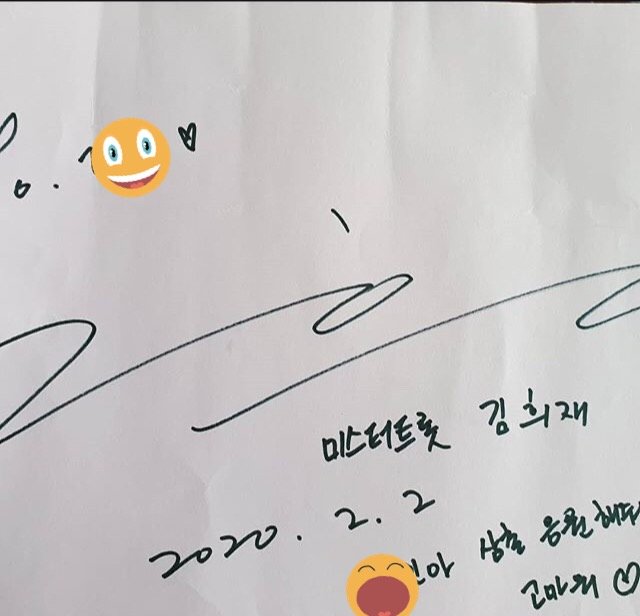 미스터트롯 김희재
2020. 2. 2
상호 응원해
고마워 ♡